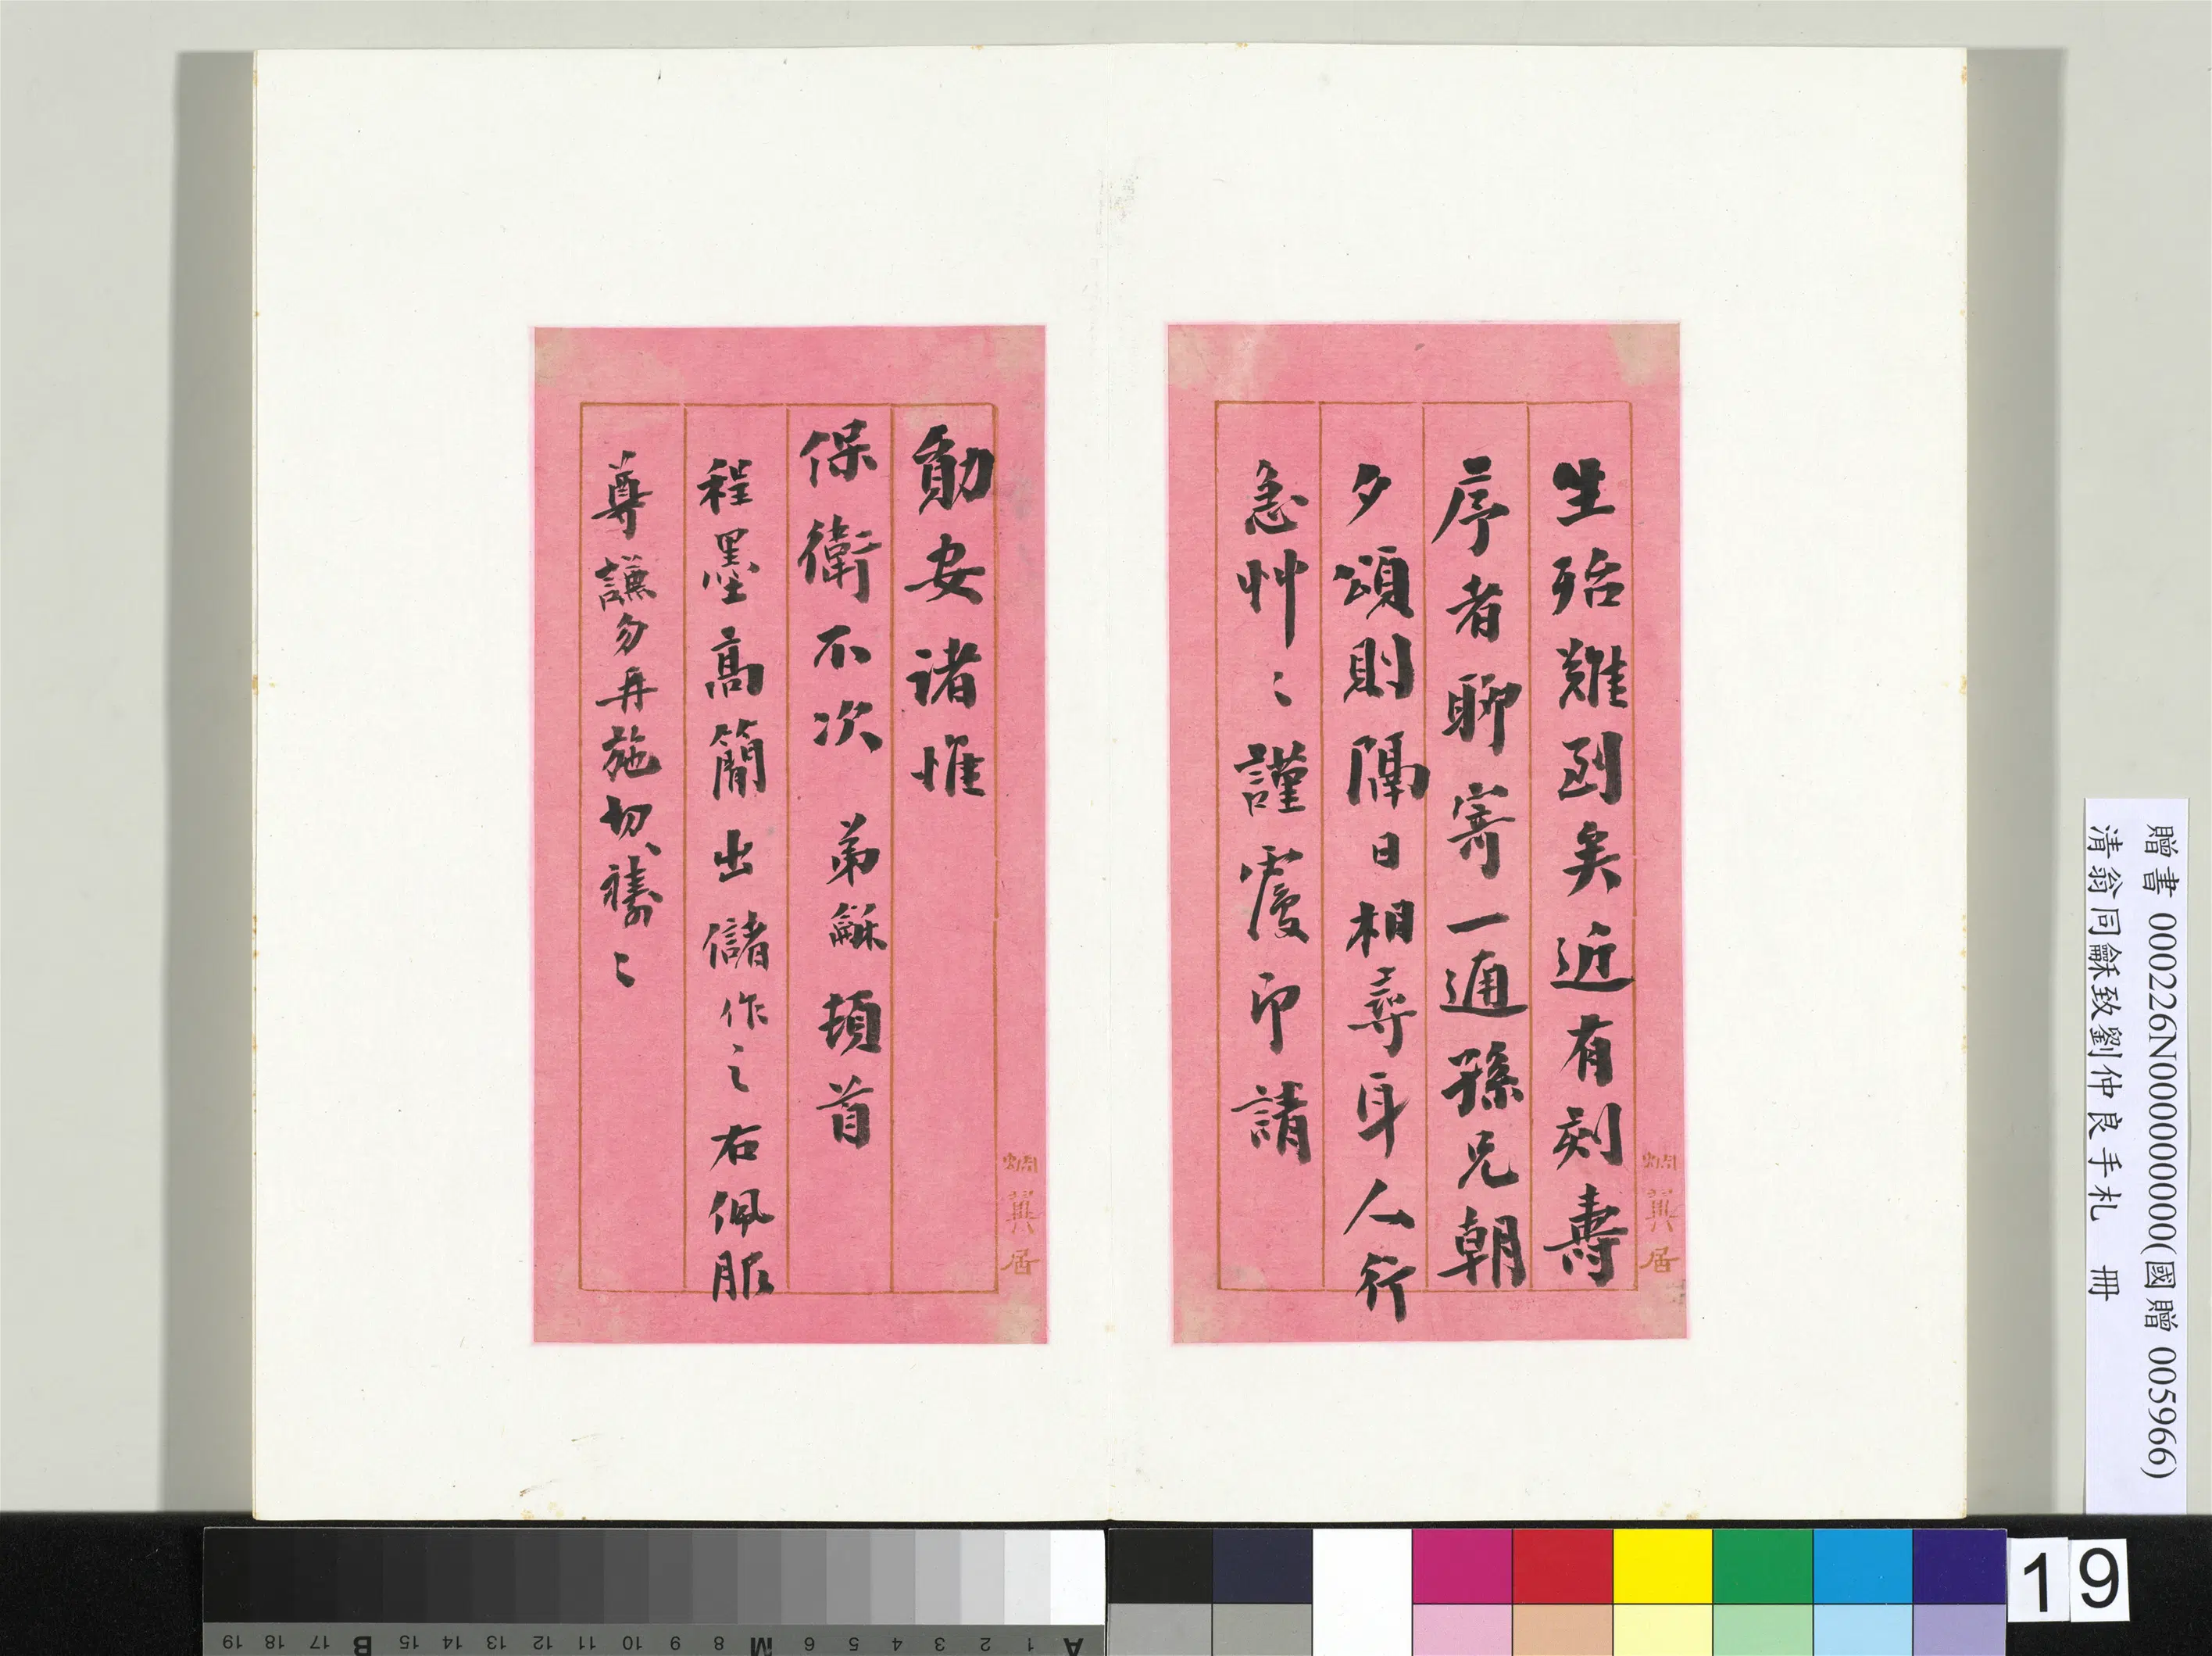 生殆難到矣近有刻壽
序者聊寄一通孫兄朝
夕頌則隔日相尋耳人行
急艸〻謹覆即請
勛安諸惟
保衛不次 弟龢頓首
程墨高簡出儲作之右佩服
尊謙勿再施切禱〻
蜩翼居
蜩翼居
贈書 000226N000000000(國贈 005966)
清翁同龢致劉仲良手札 冊
19
A 1 2 3 4 5 6 M 8 9 10 11 12 13 14 15 B 17 18 19